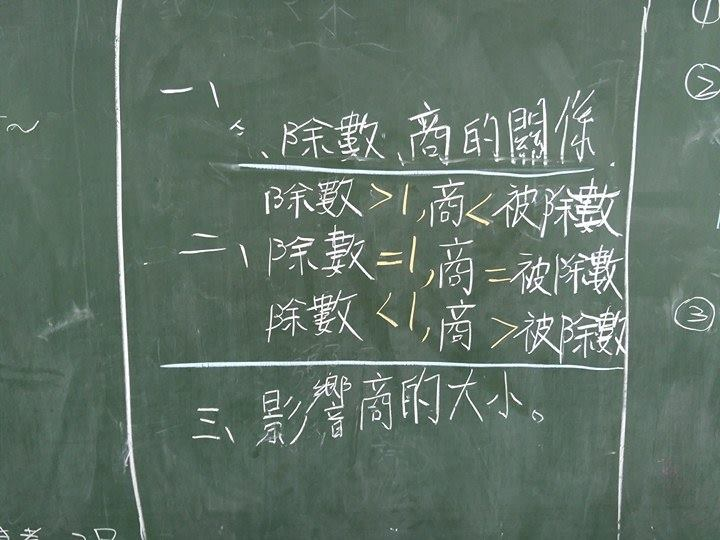 一、
、除數、商的關係
除數>1,商<被除數
二、除數=1,商=被除數
除數<1,商>被除數
三、影響商的大小。
①
②
③
~